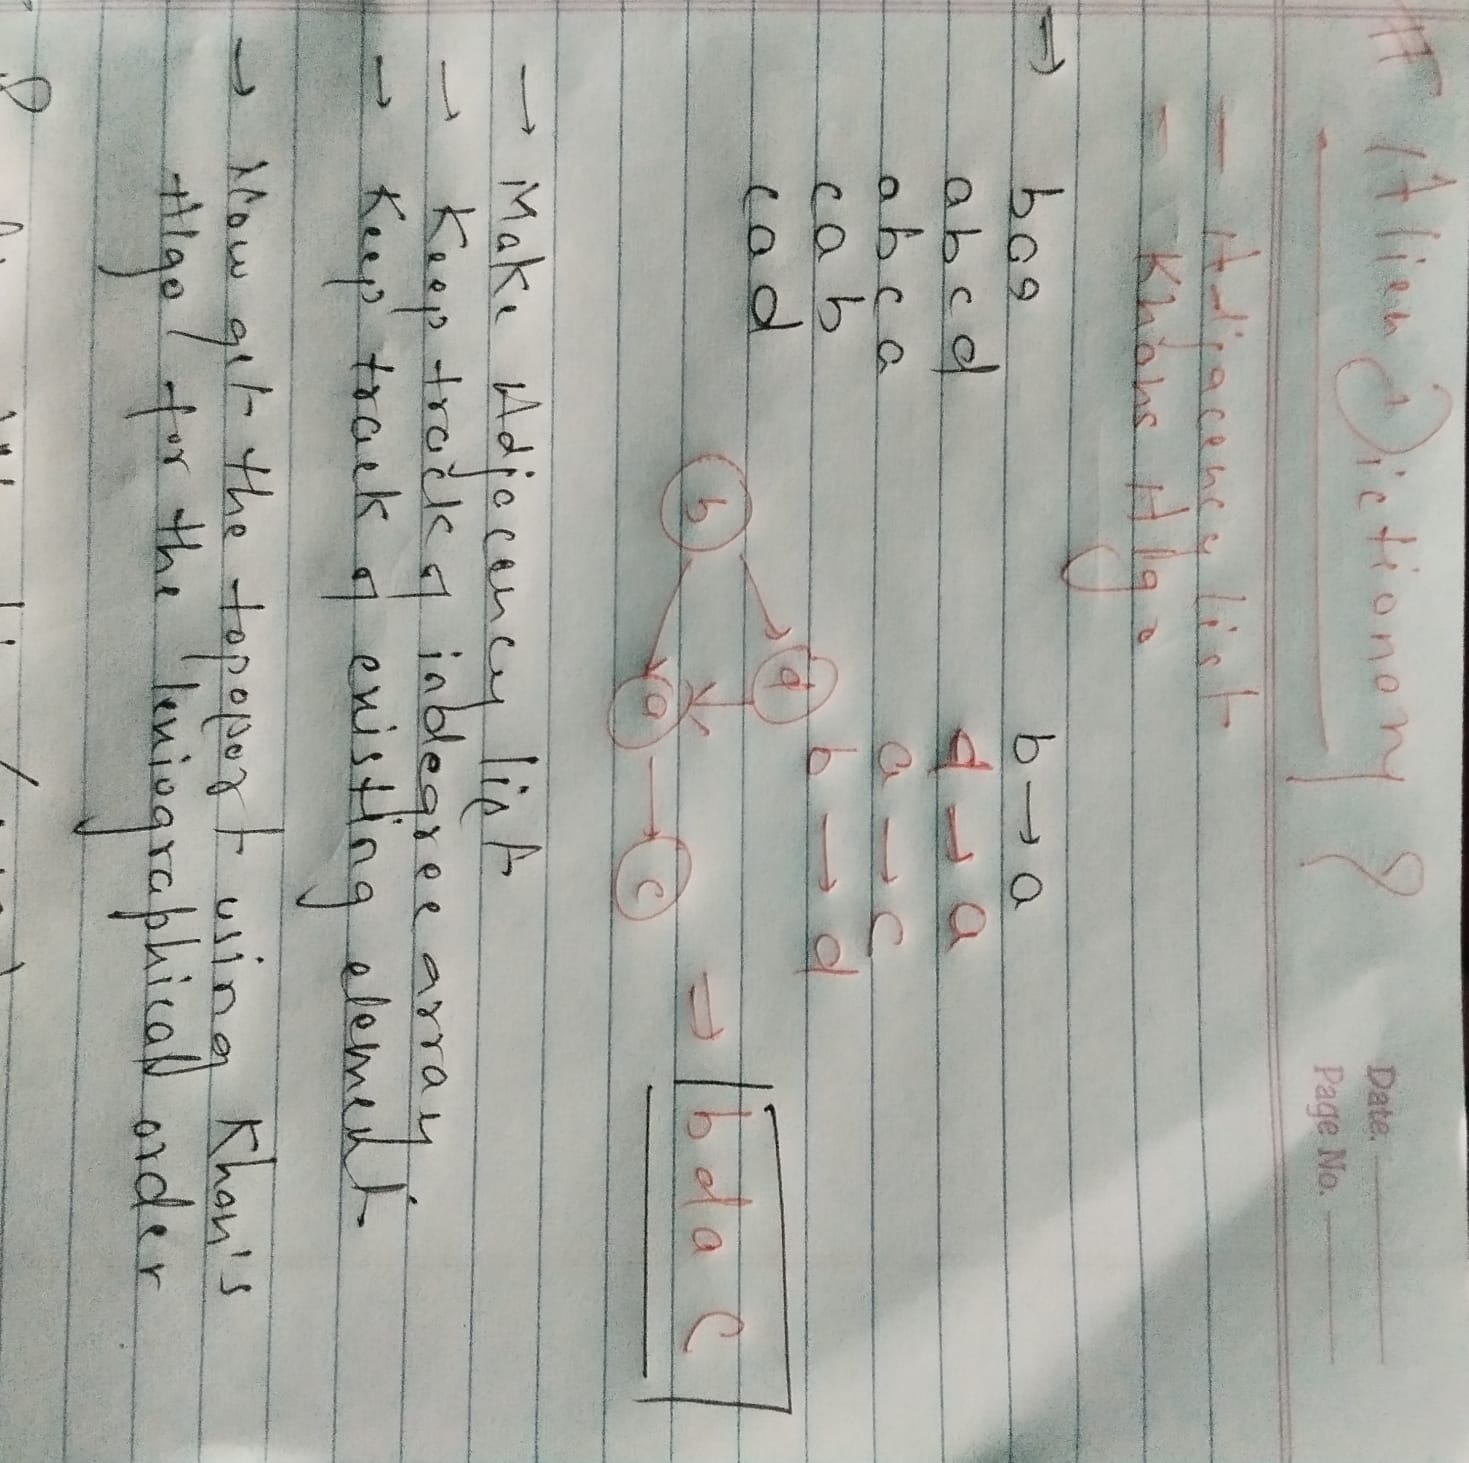 # Alien Dictionary ?
Date.
Page No.
- Adjacency list
- Khans Algo
→ baa b → a
abcd d → a
abca a → c
cab b → d
cad
b d a c → b d a c
→ Make Adjacency list
→ Keep track of indegree array
→ Keep track of existing element
→ Now get the toposort using Khan's
Algo for the lexiographical order